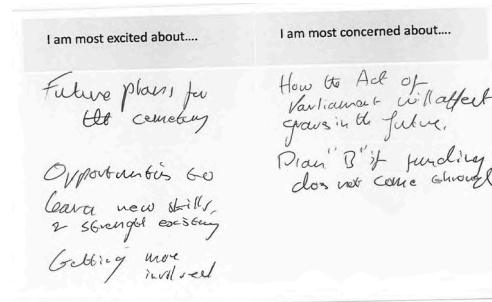 I am most excited about....
Future plans for
the cemetery
Opportunities to
learn new skills,
& strenght existing
Getting more
involved
I am most concerned about....
How the Act of
Parliament will affect
graves in the future.
Plan "B" if funding
does not come through